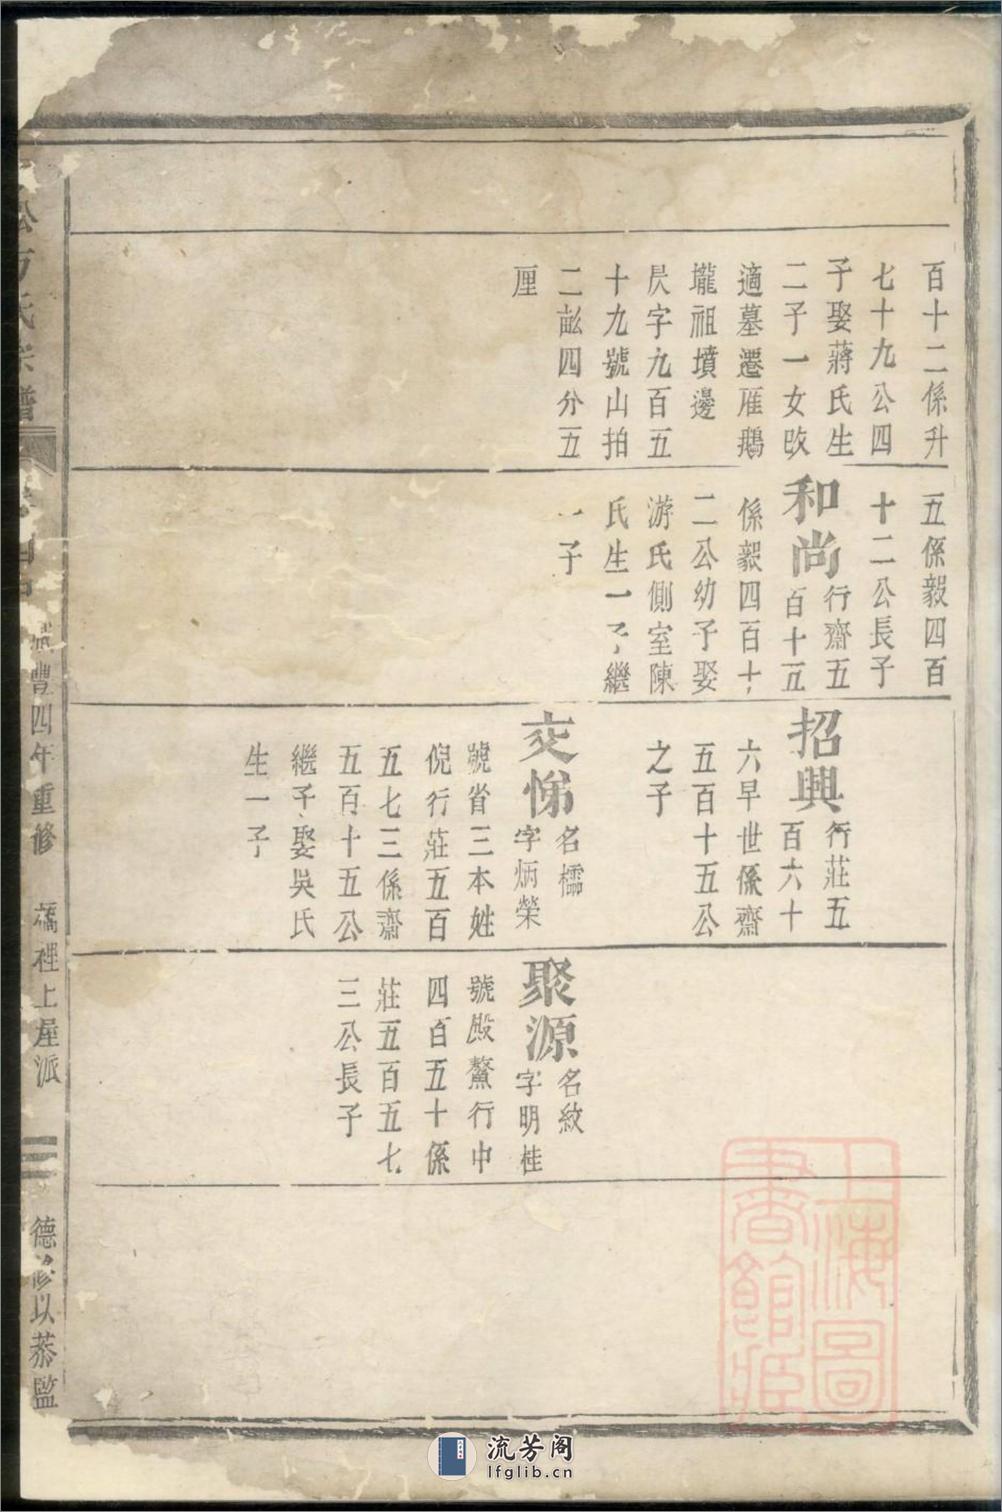 百十二係升
七十九公四
子娶蔣氏生
二子一女改
適墓遷雁鵝
壠祖墳邊
昃字九百五
十九號山拍
二畝四分五
厘
五係毅四百
十二公長子
和尚
行齋五
百十五
係毅四百十
二公幼子娶
游氏側室陳
氏生一子繼
一子
招興
行莊五
百六十
六早世係齋
五百十五公
之子
交悌
名檽
字炳榮
號省三本姓
倪行莊五百
五七三係齋
五百十五公
繼子娶吳氏
生一子
聚源
名紋
字明桂
號殿鰲行中
四百五十係
莊五百五七
三公長子
氏宗譜
咸豐四年重修
橋裡上屋派
德修以恭監
上海圖書館藏
流芳阁
lfglib.cn